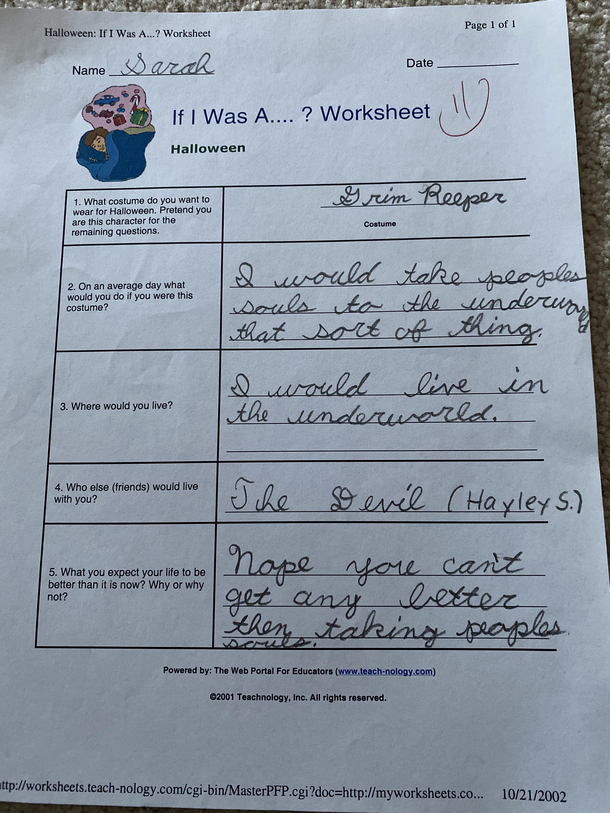 Halloween: If I Was A...? Worksheet
Page 1 of 1
Name Sarah
Date
If I Was A.... ? Worksheet
Halloween
1. What costume do you want to
wear for Halloween. Pretend you
are this character for the
remaining questions.
Grim Reeper
Costume
2. On an average day what
would you do if you were this
costume?
I would take peoples
souls to the underworld
that sort of thing.
3. Where would you live?
I would live in
the underworld.
4. Who else (friends) would live
with you?
The Devil (Hayley S.)
5. What you expect your life to be
better than it is now? Why or why
not?
Nope you can't
get any better
then taking peoples
souls.
Powered by: The Web Portal For Educators (www.teach-nology.com)
©2001 Teachnology, Inc. All rights reserved.
http://worksheets.teach-nology.com/cgi-bin/MasterPFP.cgi?doc=http://myworksheets.co... 10/21/2002